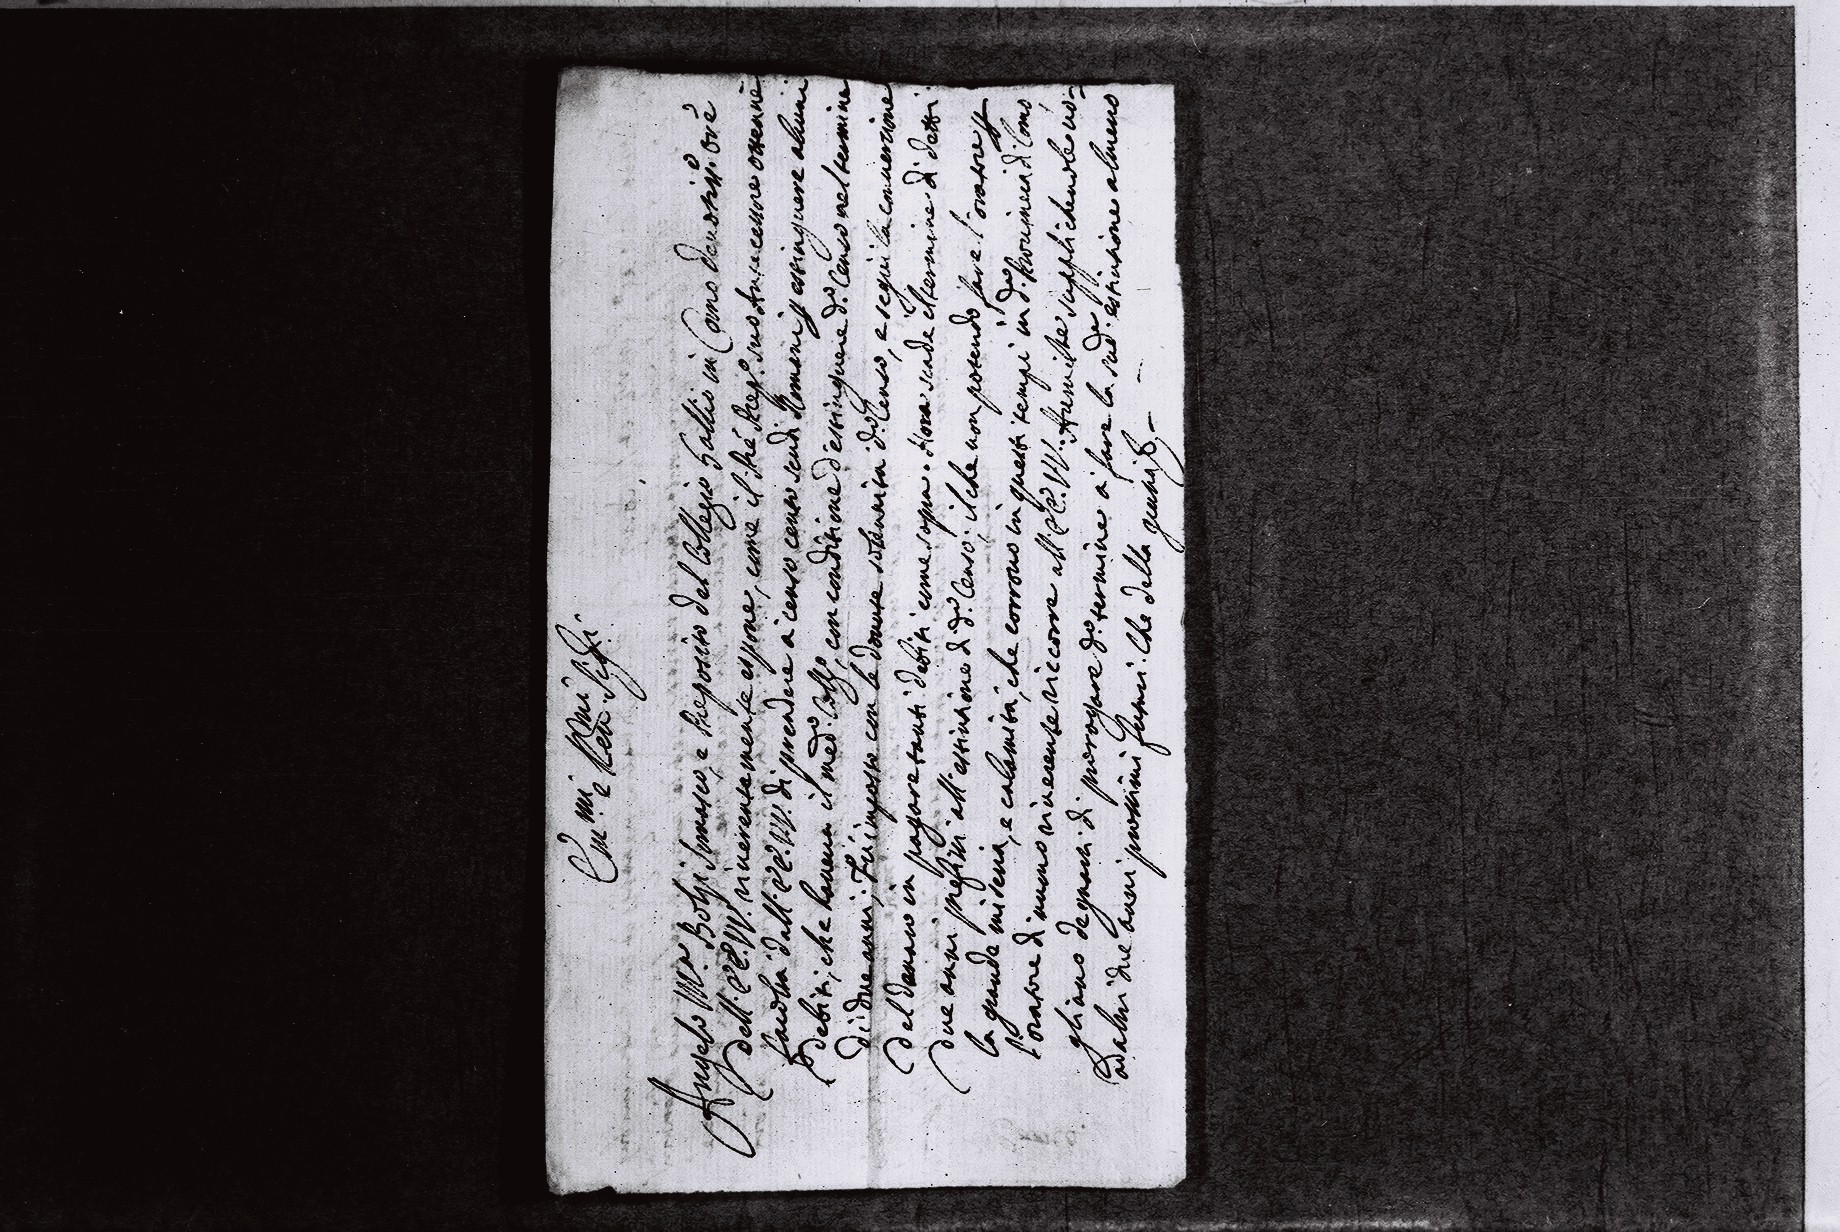 Em.mi e Rev.mi Sig.ri
Angelo M.a Bolgi Somasco, e Preposito del Collegio Gallio in Como devotiss.o Ore
dell' EE. VV. riverentemente espone, come il P.re Prep.o suo Antecessore ottenne
facoltà dall' EE. VV. di prendere à censo cento scudi Romani p estinguere alcuni
debiti, che haveva il med.o Coll.o con conditione d'estinguere d.o Censo nel termine
di due anni. Fù imposto con le dovute solennità d.o Censo, e seguì la conversione
del danaro in pagare tanti debiti come sopra. Hora scade il termine di detti
due anni prefissi all'estintione di d.o Censo; il che non potendo fare l'oratore p
la grande miseria, e calamità, che corrono in questi tempi in d.a Provincia di Como
l'oratore di nuovo riverente ricorre all' EE. VV. Humilm.e supplicandole vo-
gliano degnarsi di prorogare d.o termine à fare la sud.a estintione almeno
ad altri due anni prossimi futuri. Che della gratia &